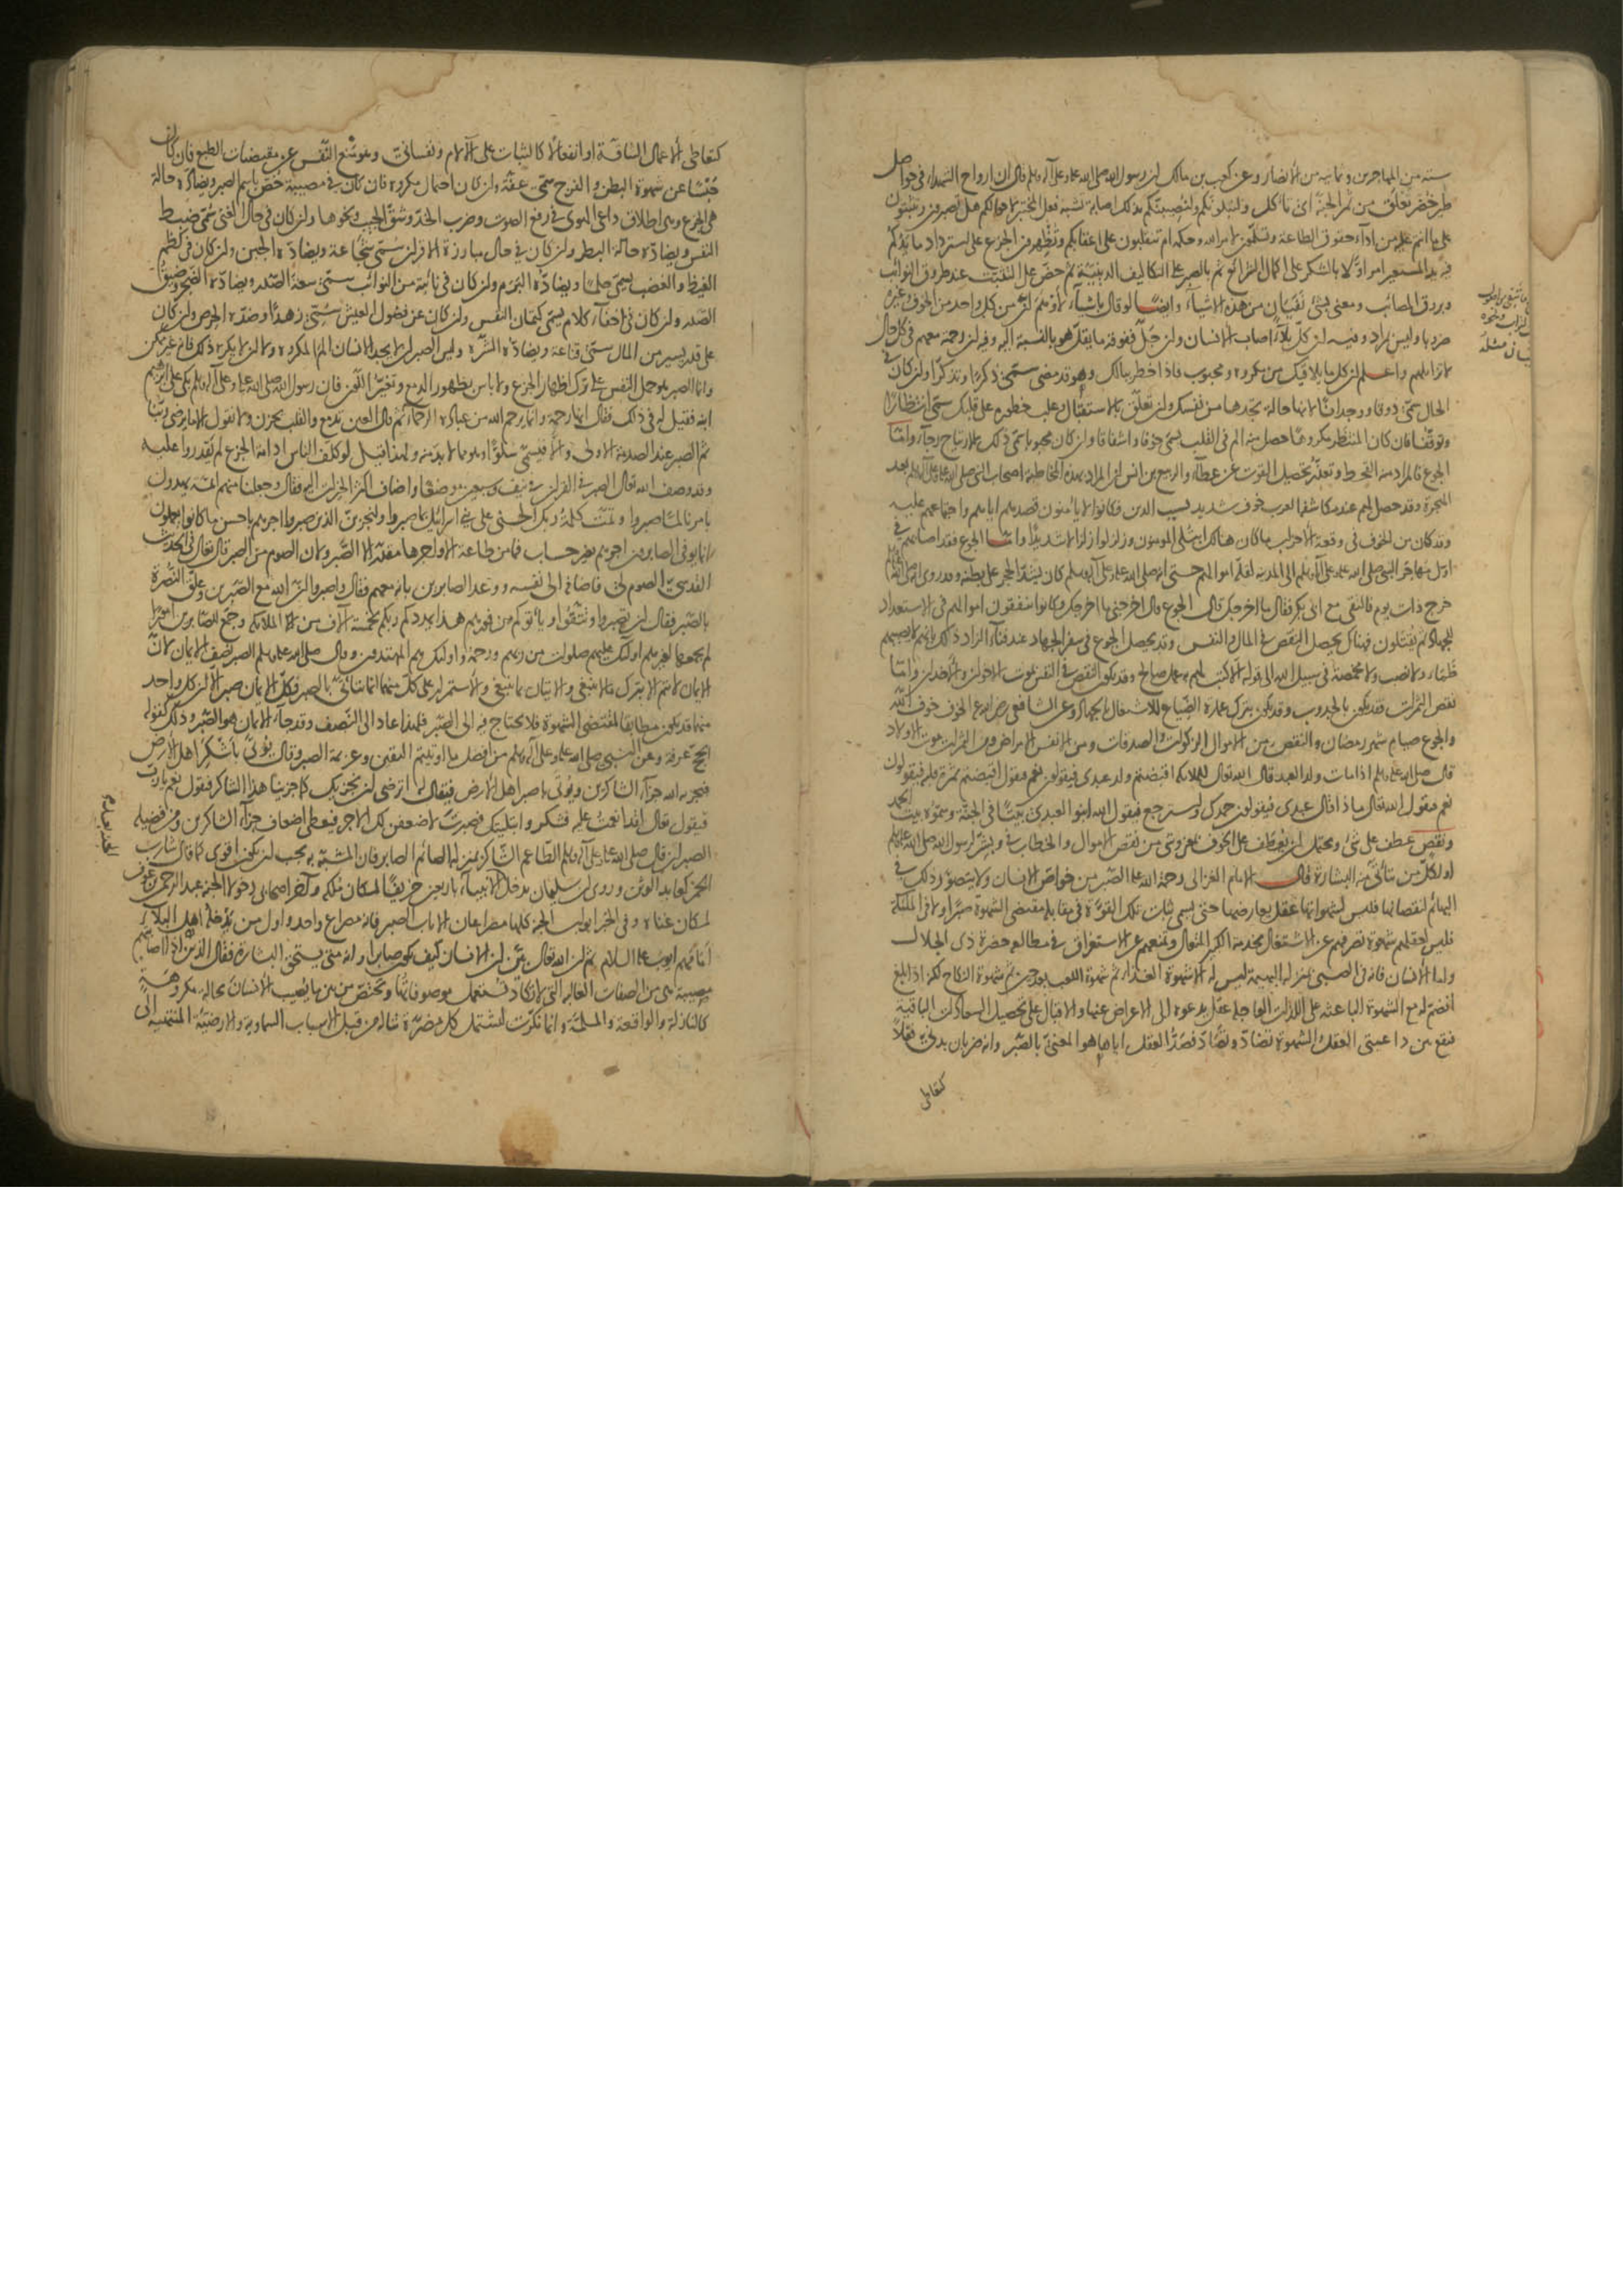 ستة من المهاجرين وثمانية من الأنصار وعن كعب بن مالك ان رسول الله صلى الله عليه وعلى آله وسلم قال ان ارواح الشهداء في حواصل
طير خضر تعلق من ثمر الجنة اى تأكل ولنبلونكم ولنصيبنكم بذلك اصابة تشبه فعل المختبر لاحوالكم هل تصبرون وتثبتون
على ما انتم عليه من اداء حقوق الطاعة وتسلمون لامر الله وحكمه ام تنقلبون على اعقابكم وتظهرون الجزع على استرداد ما بايديكم
امر اولا بالشكر على اكمال الشرائع ثم بالصبر على التكاليف الدينية ثم حض على التثبت عند طروق النوائب
المصائب ومعنى بشئ بقليل من هذه الاشياء وايضا لو قال باشياء لأوهم ان من كل واحد من الخوف وغيره
ضروبا وليس بمراد وفيه ان كل بلاء اصاب الانسان وان جل ففوقه ما يقل هو بالنسبة اليه وفيه ان رحمته معهم في كل حال
لا تزايلهم واعلم ان كل ما يلاقيك من مكروه ومحبوب فاذا خطر ببالك وهو قد مضى سمى ذكرا وتذكرا وان كان في
الحال سمى ذوقا ووجدانا لانها حالة تجدها من نفسك وان تعلق بالاستقبال وغلب خطوره على قلبك سمى انتظارا
وتوقعا فان كان المنتظر مكروها حصل منه الم في القلب يسمى خوفا واشفاقا وان كان محبوبا سمى ذلك الارتياح رجاء واما
الجوع فالمراد منه القحط وتعذر تحصيل القوت عن عطاء والربيع بن انس ان المراد بهذه المخاطبة اصحاب النبى صلى الله عليه وعلى آله وسلم بعد
الهجرة وقد حصل لهم عند مكاشفة العرب خوف شديد بسبب الدين فكانوا لا يأمنون قصدهم اياهم واجتماعهم عليه
وقد كان من الخوف في وقعة الاحزاب ما كان هنالك ابتلى المومنون وزلزلوا زلزالا شديدا واما الجوع فقد اصابهم في
اول مهاجر النبى صلى الله عليه وعلى آله وسلم الى المدينة لقلة اموالهم حتى انه صلى الله عليه وعلى آله وسلم كان يشد الحجر على بطنه وقد روى
خرج ذات يوم فالتقى مع ابى بكر فقال ما اخرجك قال الجوع قال اخرجنى ما اخرجك وكانوا ينفقون اموالهم في الاستعداد
للجهاد ثم يقتلون فهناك يحصل النقص في المال والنفس وقد يحصل الجوع في سفر الجهاد عند فناء الزاد ذلك بانهم لا يصيبهم
ظمأ ولا نصب ولا مخمصة في سبيل الله الى قوله الا كتب لهم به عمل صالح وقد يكون النقص في النفس بموت الاخوان والاقارب واما
نقص الثمرات فقد يكون بالجدوب وقد يكون بترك عمارة الضياع للاشتغال بالجهاد وعن الشافعى رضى الله عنه الخوف خوف الله
والجوع صيام شهر رمضان والنقص من الاموال الزكوات والصدقات ومن الانفس الامراض ومن الثمرات موت الاولاد
قال صلى الله عليه وسلم اذا مات ولد العبد قال الله تعالى للملائكة اقبضتم ولد عبدى فيقولون نعم فيقول اقبضتم ثمرة قلبه فيقولون
نعم فيقول الله تعالى ماذا قال عبدى فيقولون حمدك واسترجع فيقول الله ابنوا لعبدى بيتا في الجنة وسموه بيت الحمد
ونقص عطف على شئ ويحتمل ان يعطف على الخوف بمعنى وشئ من نقص الاموال والخطاب في وبشر لرسول الله صلى الله عليه وسلم
او لكل من يتأتى منه البشارة قال الامام الغزالى رحمة الله عليه الصبر من خواص الانسان ولا يتصور ذلك في
البهائم لنقصانها فليس لشهواتها عقل يعارضها حتى يسمى ثبات تلك القوة في مقابلة مقتضى الشهوة صبرا ولا في الملئكة
فليس لعقلهم شهوة تصرفهم عن الاشتغال بخدمة الكبير المتعال وتمنعهم عن الاستغراق في مطالعة حضرة ذى الجلال
واما الانسان فانه في الصبى بمنزلة البهيمة ليس له الا شهوة الغذاء ثم شهوة اللعب بعد حين ثم شهوة النكاح لكنه اذا بلغ
انضم له مع الشهوة الباعثة على اللذات العاجلة عقل يدعوه الى الاعراض عنها والاقبال على تحصيل السعادات الباقية
فيقع بين داعيتى العقل والشهوة تضاد وتضاد فصد العقل اياها هو المعنى بالصبر وانه ضربان بدنى فعلا
كتعاطى
كتعاطى الاعمال الشاقة او انفعالا كالثبات على الالام ونفسانى وهو منع النفس عن مقتضيات الطبع فان كان
حبسا عن شهوة البطن والفرج سمى عفة وان كان احتمال مكروه فان كان في مصيبة خص باسم الصبر ويضاده حالة
هى الجزع وهى اطلاق داعى الهوى في رفع الصوت وضرب الخد وشق الجيب ونحوها وان كان في حال الغنى سمى ضبط
النفس ويضاده حالة البطر وان كان في حال مبارزة الاقران سمى شجاعة ويضاده الجبن وان كان في كظم
الغيظ والغضب يسمى حلما ويضاده النزق وان كان في نائبة من النوائب سمى سعة الصدر ويضاده الضجر وضيق
الصدر وان كان في اخفاء كلام يسمى كتمان النفس وان كان عن فضول العيش سمى زهدا وضده الحرص وان كان
على قدر يسير من المال سمى قناعة ويضاده الشره وليس الصبر ان لا يجد الانسان الم المكروه ولا ان لا يكره ذلك فانه غير ممكن
وانما الصبر هو حمل النفس على ترك اظهار الجزع ولا بأس بظهور الدمع وتغير اللون فان رسول الله صلى الله عليه وعلى آله وسلم بكى على ابرهيم
ابنه فقيل له في ذلك فقال انها رحمة وانما يرحم الله من عباده الرحماء ثم قال العين تدمع والقلب يحزن ولا نقول الا ما يرضى ربنا
ثم الصبر عند الصدمة الاولى والا فيسمى سلوا وهو مما لا بد منه ولهذا قيل لو كلف الناس ادامة الجزع لم يقدروا عليه
وقد وصف الله تعالى الصبر في القران في نيف وسبعين موضعا واضاف اكثر الخيرات اليه فقال وجعلنا منهم ائمة يهدون
بامرنا لما صبروا وتمت كلمة ربك الحسنى على بنى اسرائيل بما صبروا ولنجزين الذين صبروا اجرهم باحسن ما كانوا يعملون
انما يوفى الصابرون اجرهم بغير حساب فما من طاعة الا واجرها مقدر الا الصبر ولان الصوم من الصبر قال تعالى في الحديث
القدسى الصوم لى فاضافه الى نفسه ووعد الصابرين بانه معهم فقال واصبروا ان الله مع الصبرين وعلق النصرة
بالصبر فقال ان تصبروا وتتقوا ويأتوكم من فورهم هذا يمددكم ربكم بخمسة آلاف من الملائكة وجمع للصابرين امورا
لم يجمعها لغيرهم اولئك عليهم صلوات من ربهم ورحمة واولئك هم المهتدون وقال صلى الله عليه وسلم الصبر نصف الايمان لان
الايمان لا يتم الا بترك ما لا ينبغى والاتيان بما ينبغى والاستمرار على كل منهما انما يتأتى بالصبر فكل الايمان صبر الا ان كل واحد
منهما قد يكون مطابقا لمقتضى الشهوة فلا يحتاج فيه الى الصبر فلهذا عاد الى النصف وقد جاء الايمان هو الصبر وذلك كقوله
الحج عرفة وعن النبى صلى الله عليه وعلى آله وسلم من افضل ما اوتيتم اليقين وعزيمة الصبر وقال يؤتى باشكر اهل الأرض
فيجزيه الله جزاء الشاكرين ويؤتى باصبر اهل الارض فيقال له اترضى ان نجزيك كما جزينا هذا الشاكر فيقول نعم يا رب
فيقول تعالى لقد انعمت عليه فشكر وابتليتك فصبرت لاضعفن لك الاجر فيعطى اضعاف جزاء الشاكرين ومن فضيلة
الصبر ان قال صلى الله عليه وعلى آله وسلم الطاعم الشاكر بمنزلة الصائم الصابر فان المشبه به يجب ان يكون اقوى كما قال شارب
الخمر كعابد الوثن وروى ان سليمان يدخل الجنة بعد الأنبياء باربعين خريفا لمكان ملكه وآخر اصحابى دخولا الجنة عبد الرحمن بن عوف
لمكان غناه وفي الخبر ابواب الجنة كلها مصراعان الا باب الصبر فانه مصراع واحد واول من يدخله اهل البلاء
امامهم ايوب عليه السلام ثم ان الله تعالى بين ان الانسان كيف يكون صابرا وانه متى يستحق البشارة فقال الذين اذا اصابتهم
مصيبة هى من الصفات الغالبة التى لا تكاد تستعمل موصوفاتها وتختص من بين ما يصيب الانسان بحالة مكروهة
كالنازلة والواقعة والملمة وانما نكرت لتشتمل كل مضرة تناله من قبل الاسباب السماوية والارضية المنتهية الى